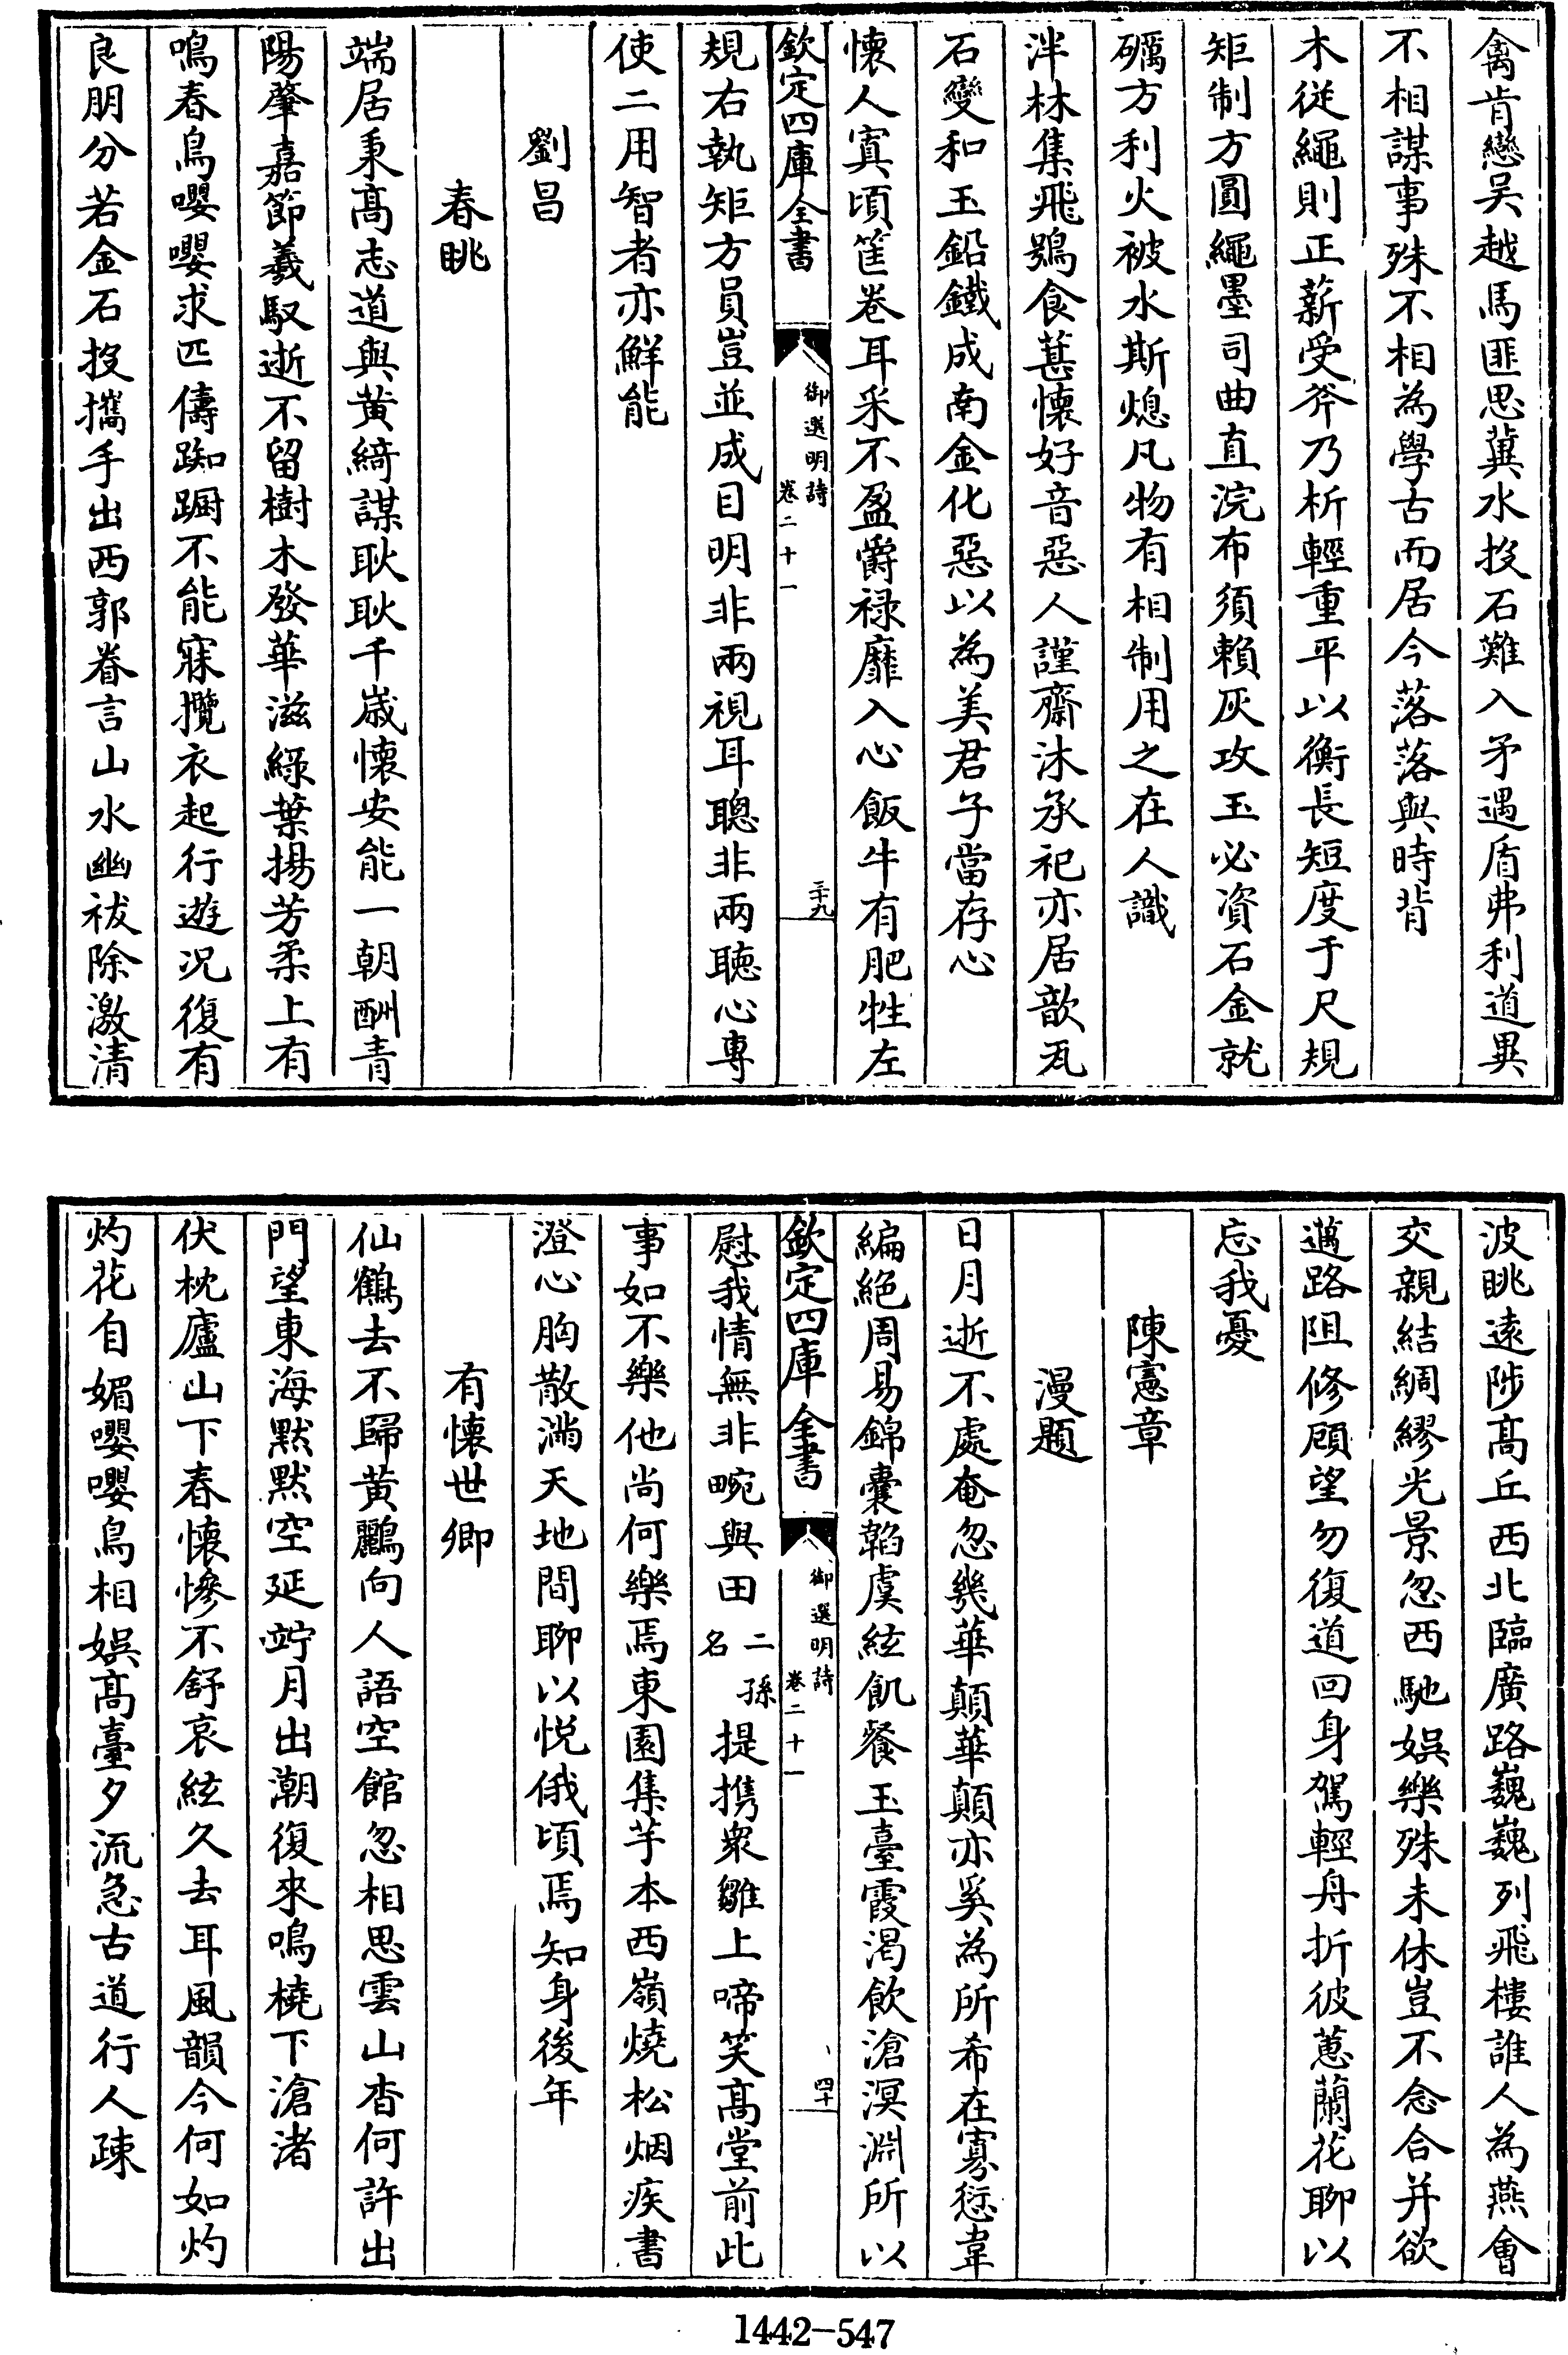 禽肯戀吴越馬匪思冀水投石難入矛遇盾弗利道異
不相謀事殊不相為學古而居今落落與時背
木從繩則正薪受斧乃析輕重平以衡長短度于尺規
矩制方圓繩墨司曲直浣布須賴灰攻玉必資石金就
礪方利火被水斯熄凡物有相制用之在人識
泮林集飛鴞食葚懷好音惡人謹齋沐承祀亦居歆瓦
石變和玉鉛鐵成南金化惡以為美君子當存心
懷人寘頃筐卷耳采不盈爵禄靡入心飯牛有肥牲左
欽定四庫全書
御選明詩
卷二十一
三十九
規右執矩方員豈並成目明非兩視耳聰非兩聴心專
使二用智者亦鮮能
劉昌
春眺
端居秉髙志道與黄綺謀耿耿千歳懷安能一朝酬青
陽肇嘉節羲馭逝不留樹木發華滋緑葉揚芳柔上有
鳴春鳥嚶嚶求匹儔踟蹰不能寐攬衣起行遊况復有
良朋分若金石投攜手出西郭眷言山水幽祓除激清
波眺遠陟髙丘西北臨廣路巍巍列飛樓誰人為燕會
交親結綢繆光景忽西馳娯樂殊未休豈不念合并欲
邁路阻修顧望勿復道回身駕輕舟折彼蕙蘭花聊以
忘我憂
陳憲章
漫題
日月逝不處奄忽幾華顛華顛亦奚為所希在寡愆韋
編絶周易錦囊韜虞絃飢餐玉臺霞渴飲滄溟淵所以
欽定四庫全書
御選明詩
卷二十一
四十
慰我情無非畹與田二孫名提携衆雛上啼笑髙堂前此
事如不樂他尚何樂焉東園集芋本西嶺燒松烟疾書
澄心胸散滿天地間聊以悦俄頃焉知身後年
有懷世卿
仙鶴去不歸黄鸝向人語空館忽相思雲山杳何許出
門望東海默默空延竚月出潮復來鳴橈下滄渚
伏枕廬山下春懷慘不舒哀絃久去耳風韻今何如灼
灼花自媚嚶嚶鳥相娯髙臺夕流急古道行人疎
1442-547